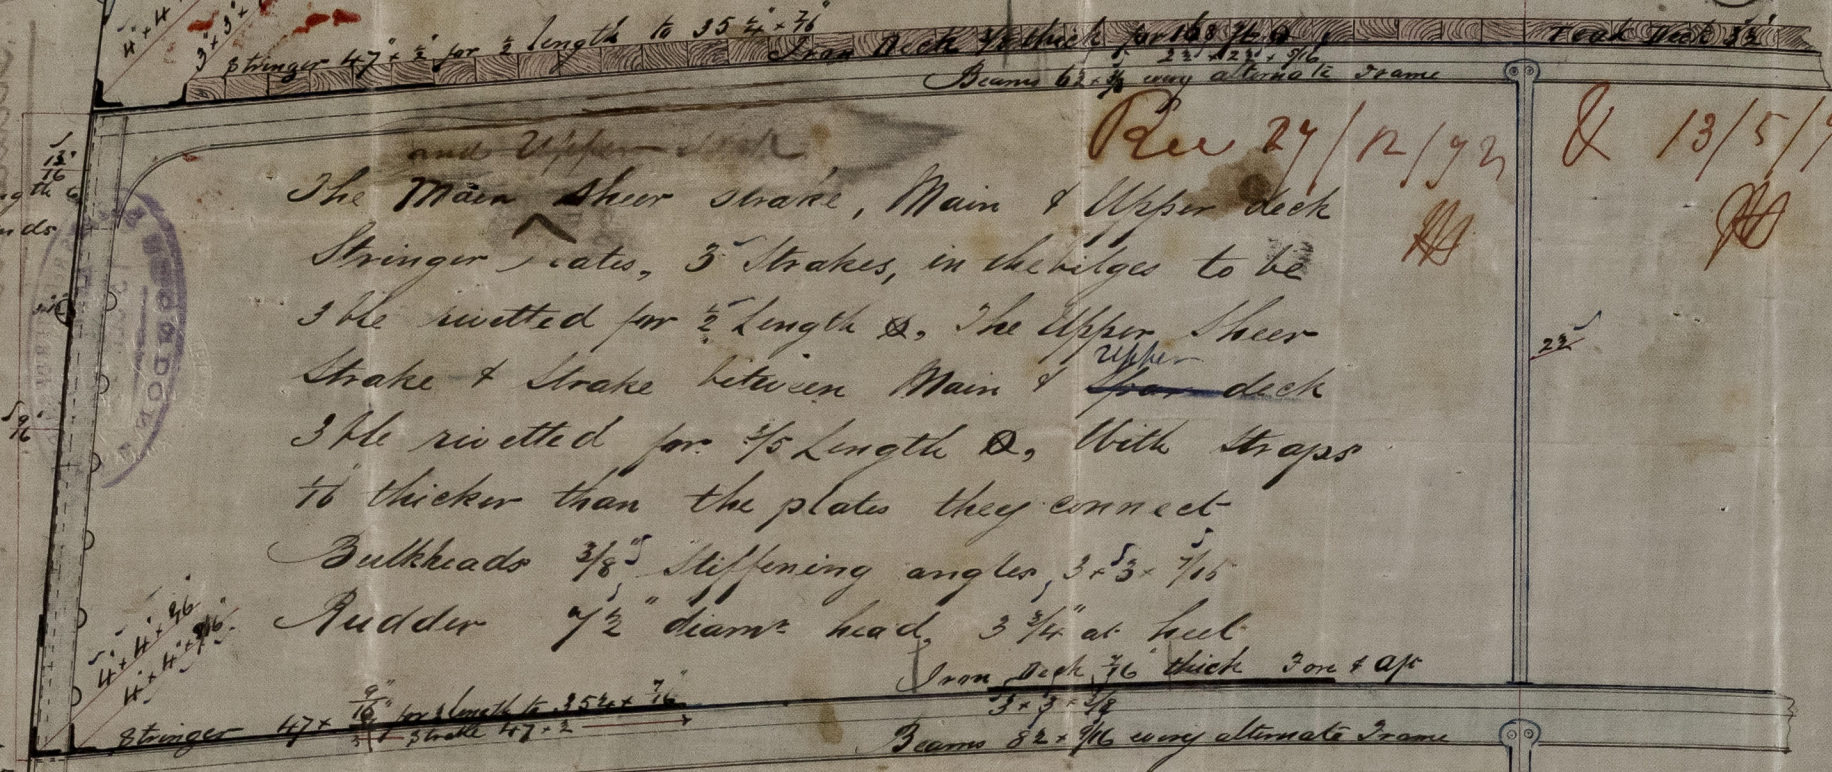 4" × 4" ×
3" × 3" ×
Stringer 47" × ½" for ½ length to 35 ¼" × 7/16"
Iron Deck 3/8 thick for
Teak Deck 3½"
2½" × 2½" × 5/16
Beams 6½ × 3/8 every alternate Frame
Rec 27/12/92 & 13/5/9
and Upper deck
13/16"
The Main Sheer strake, Main & Upper deck
Stringer Plates, 3 Strakes, in the bilges to be
3ble rivetted for ½ Length ⦻, The Upper Sheer
Upper
Strake & Strake between Main & Spar deck
3ble rivetted for 3/5 Length ⦻, With straps
1/16 thicker than the plates they connect
Bulkheads 3/8", Stiffening angles, 3 × 3 × 7/16
Rudder 7½" diamr head, 3 3/4" at heel
9/16
4" × 4" × 9/16
4" × 4" × 9/16"
Iron Deck 7/16" thick Fore & Aft
3 × 3 × 3/8
Stringer 47 × 9/16" for ½ length to 35¼ × 7/16"
Beams 8½ × 9/16 every alternate Frame